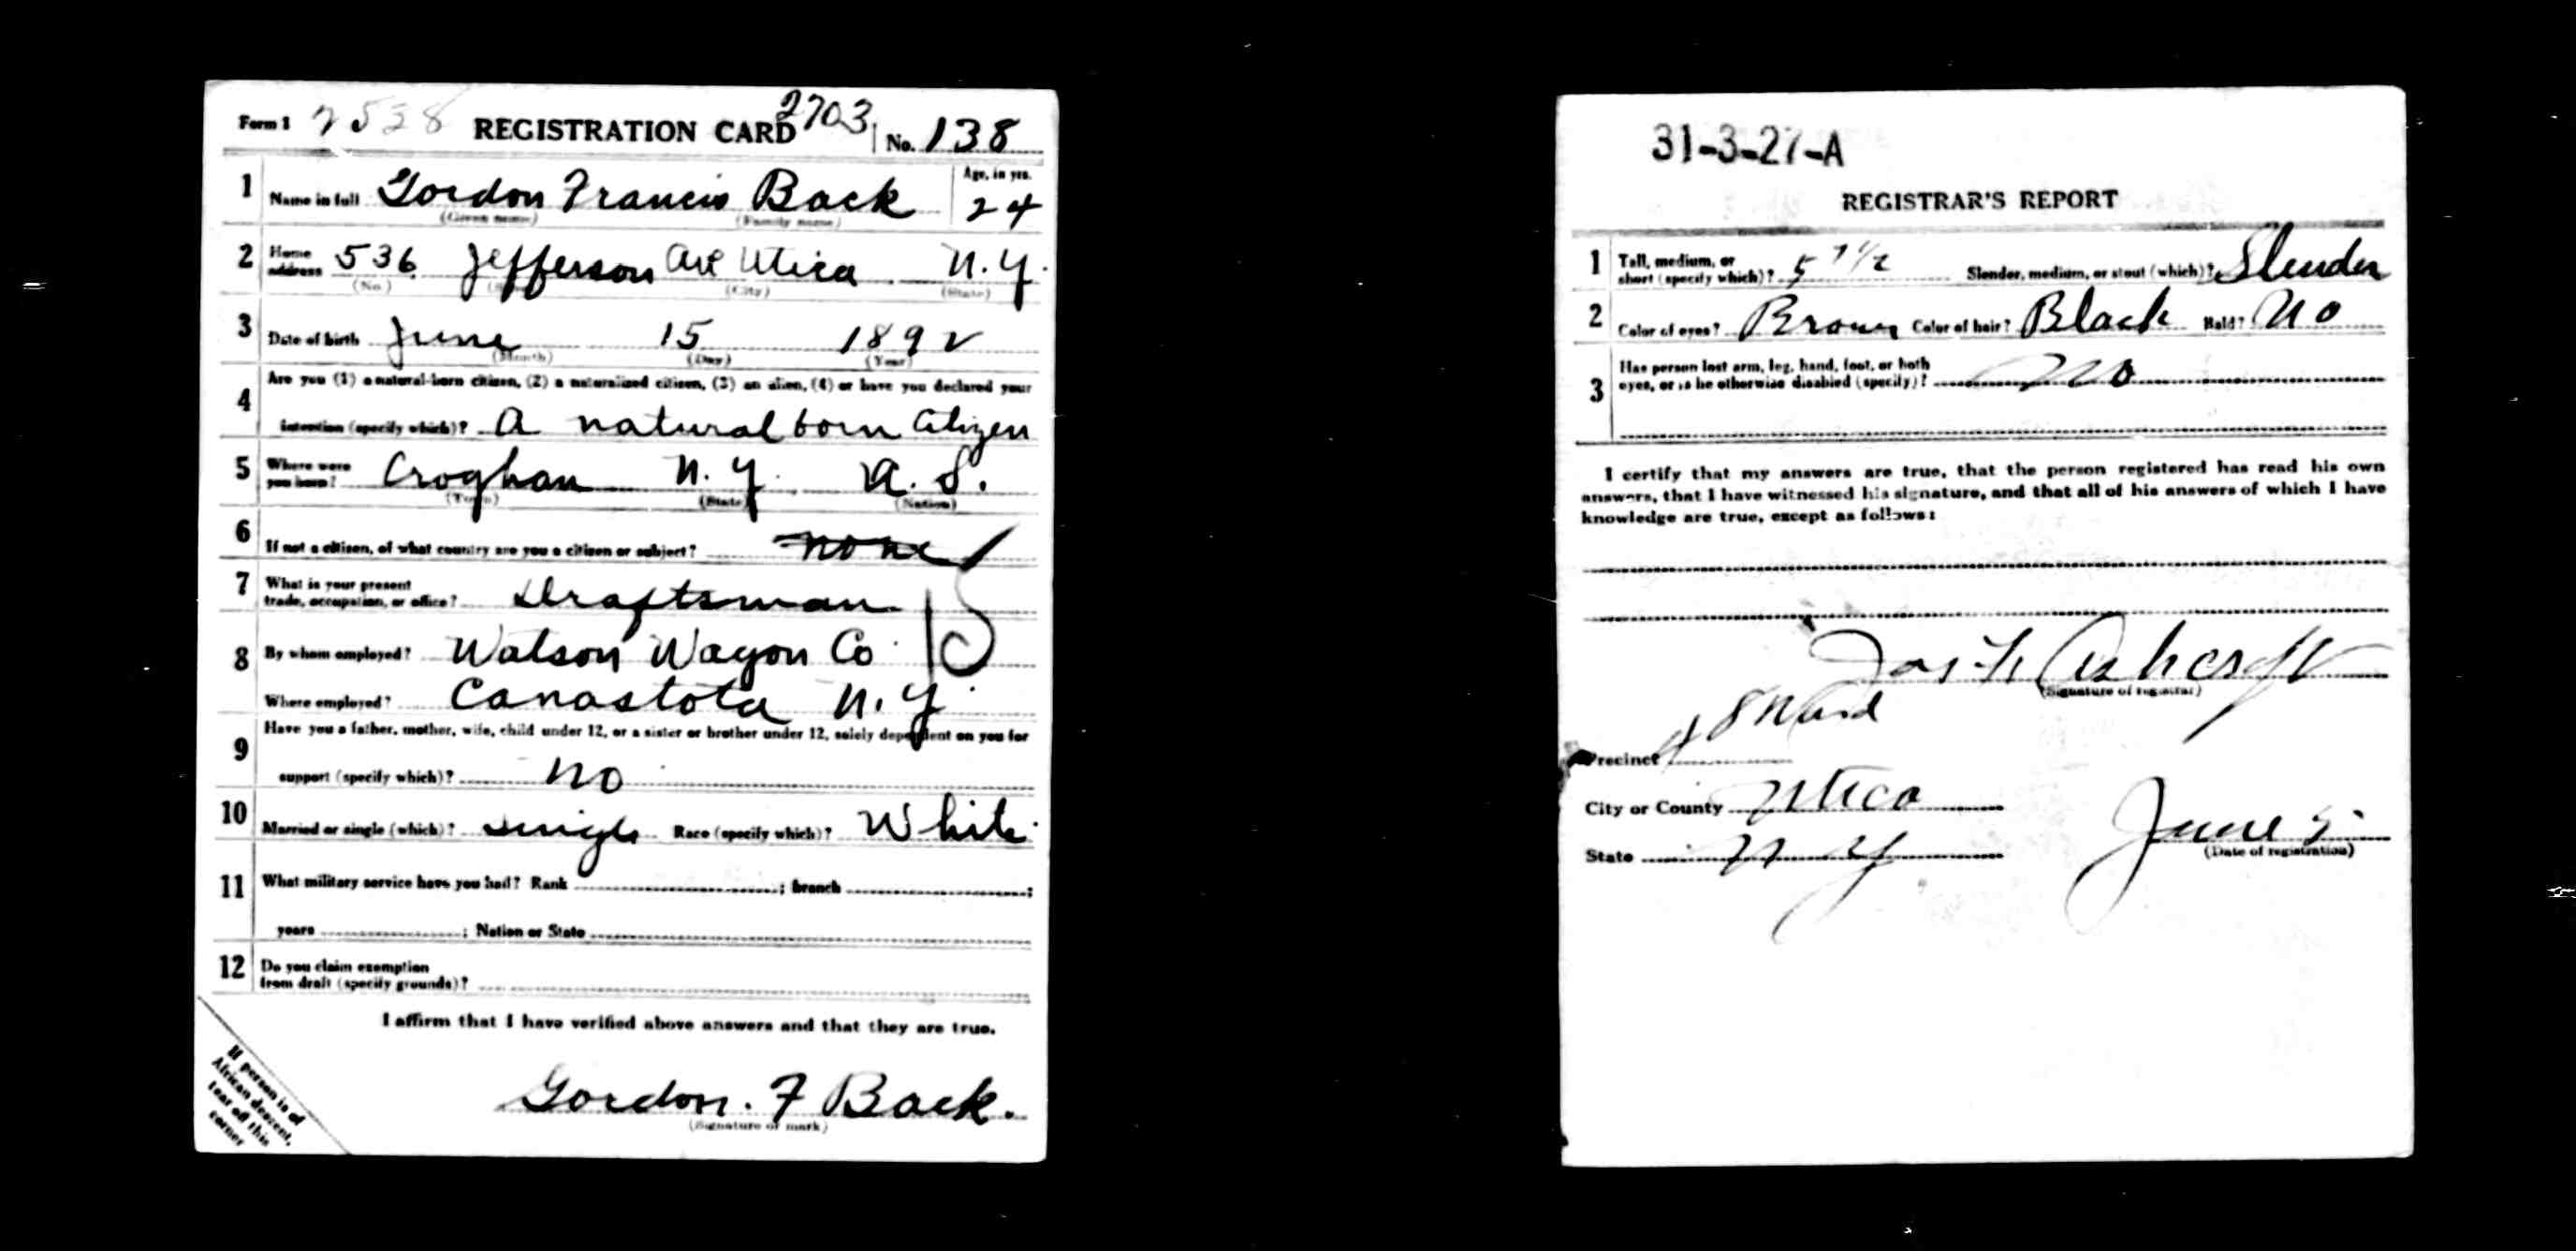 Form 1 2538 REGISTRATION CARD 2703 No. 138
1 Name in full Gordon Francis Back Age, in yrs. 24
(Given name) (Family name)
2 Home address 536 Jefferson Ave Utica N.Y.
(No.) (City) (State)
3 Date of birth June 15 1892
(Month) (Day) (Year)
4 Are you (1) a natural-born citizen, (2) a naturalized citizen, (3) an alien, (4) or have you declared your
intention (specify which)? A natural born Citizen
5 Where were you born? Croghan N.Y. U. S.
(Town) (State) (Nation)
6 If not a citizen, of what country are you a citizen or subject? none
7 What is your present
trade, occupation, or office? Draftsman
8 By whom employed? Watson Wagon Co
Where employed? Canastota N.Y.
9 Have you a father, mother, wife, child under 12, or a sister or brother under 12, solely dependent on you for
support (specify which)? no
10 Married or single (which)? single Race (specify which)? White
11 What military service have you had? Rank ; branch ;
years ; Nation or State
12 Do you claim exemption
from draft (specify grounds)?
I affirm that I have verified above answers and that they are true.
Gordon. F Back.
(Signature or mark)
If person is of
African descent,
tear off this
corner
31-3-27-A
REGISTRAR'S REPORT
1 Tall, medium, or
short (specify which)? 5 7 1/2 Slender, medium, or stout (which)? Slender
2 Color of eyes? Brown Color of hair? Black Bald? No
3 Has person lost arm, leg, hand, foot, or both
eyes, or is he otherwise disabled (specify)? No
I certify that my answers are true, that the person registered has read his own
answers, that I have witnessed his signature, and that all of his answers of which I have
knowledge are true, except as follows:
Ashcroft
(Signature of registrar)
8 Ward
Precinct 4
City or County Utica
State N Y June 5
(Date of registration)